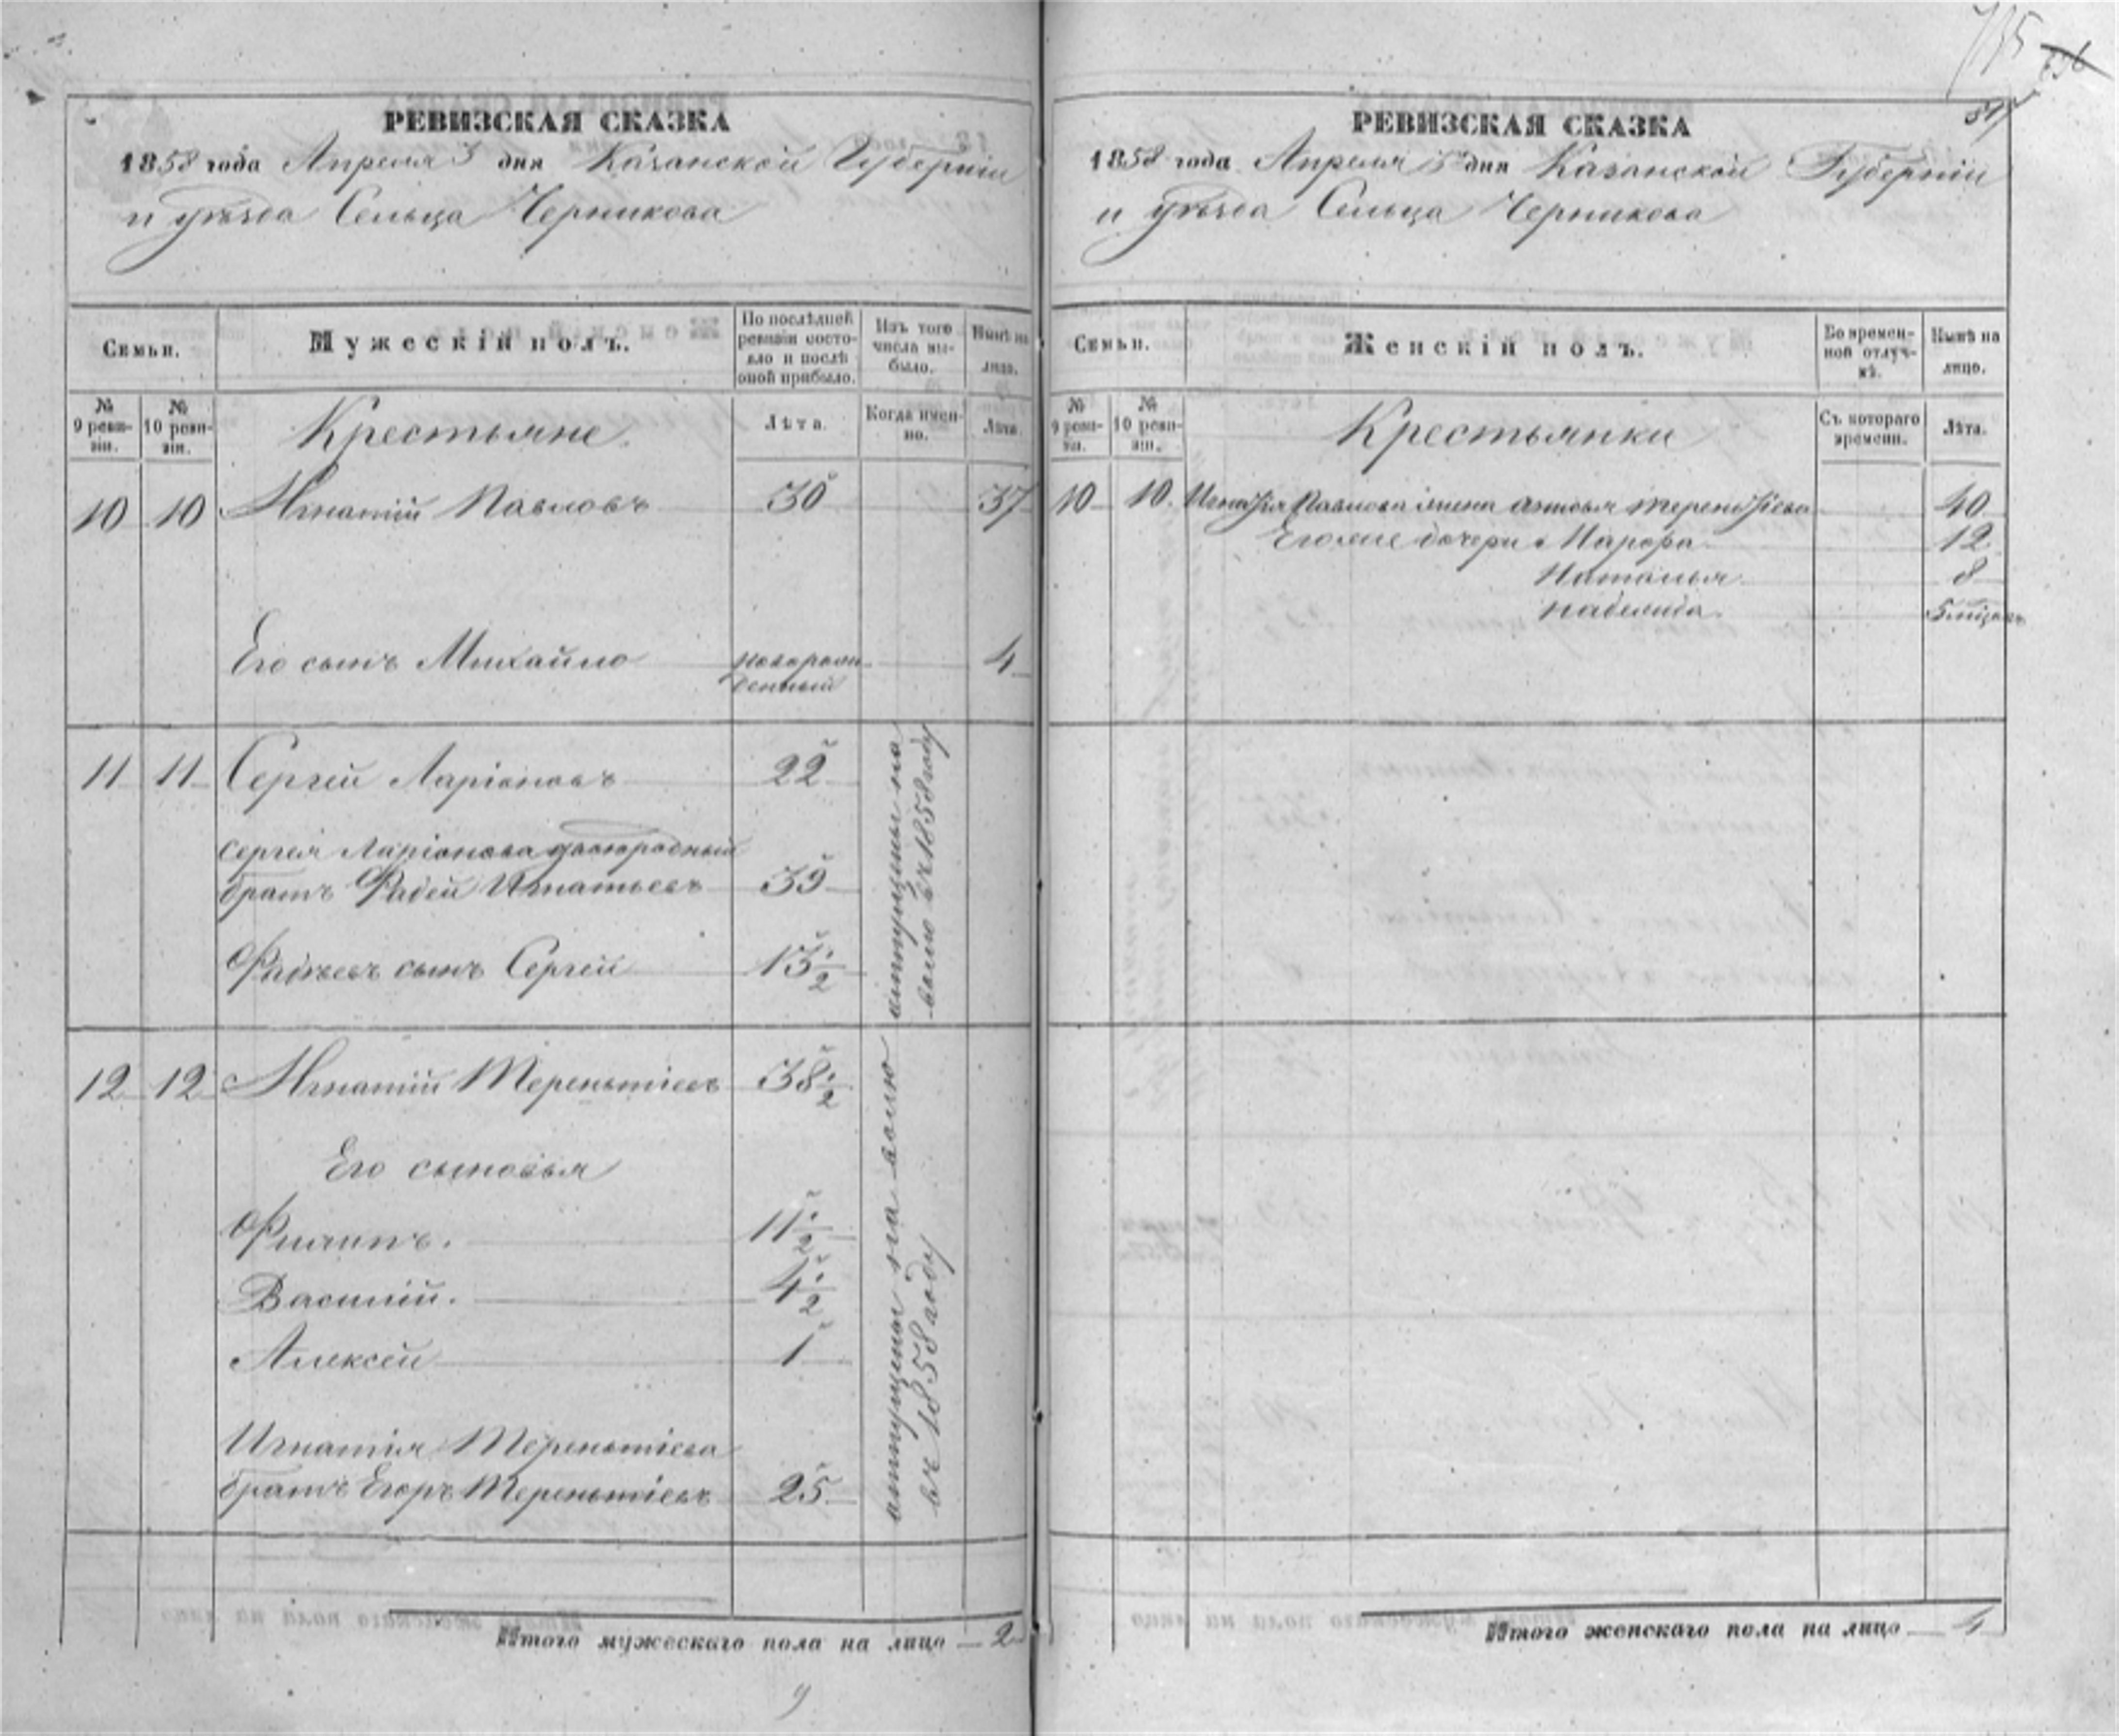 РЕВИЗСКАЯ СКАЗКА
1858 года Апреля 5 дня Казанской Губерніи
и уѣзда Сельца Черникова
Семьи.
Мужескій полъ.
По послѣдней ревизіи состояло и послѣ оной прибыло.
Изъ того числа выбыло.
Нынѣ на лицо.
№ 9 ревизіи.
№ 10 ревизіи.
Крестьяне
Лѣта.
Когда именно.
Лѣта.
10 10 Игнатій Павловъ 30 37
Его сынъ Михайло новорожденный 4
11 11 Сергѣй Ларіоновъ 22
Сергѣя Ларіонова двоюродный
братъ Фадей Игнатьевъ 39
Фадѣевъ сынъ Сергей 13 1/2
отпущены на
волю въ 1858 году
12 12 Игнатій Терентьіевъ 38 1/2
Его сыновья
Филипъ. 11 1/2
Василій. 4 1/2
Алексей 1
Игнатія Терентьіева
братъ Егоръ Терентьіевъ 25
отпущены на волю
въ 1858 году
Итого мужескаго пола на лицо 2
РЕВИЗСКАЯ СКАЗКА
1858 года Апреля 5 дня Казанской Губерніи
и уѣзда Сельца Черникова
Семьи.
Женскій полъ.
Во временной отлучкѣ.
Нынѣ на лицо.
№ 9 ревизіи.
№ 10 ревизіи.
Крестьянки
Съ котораго времени.
Лѣта.
10 10 Игнатія Павлова жена Терентьіева 40
Его же дочери Марфа 12
Наталья 8
5 місяц
Итого женскаго пола на лицо 4